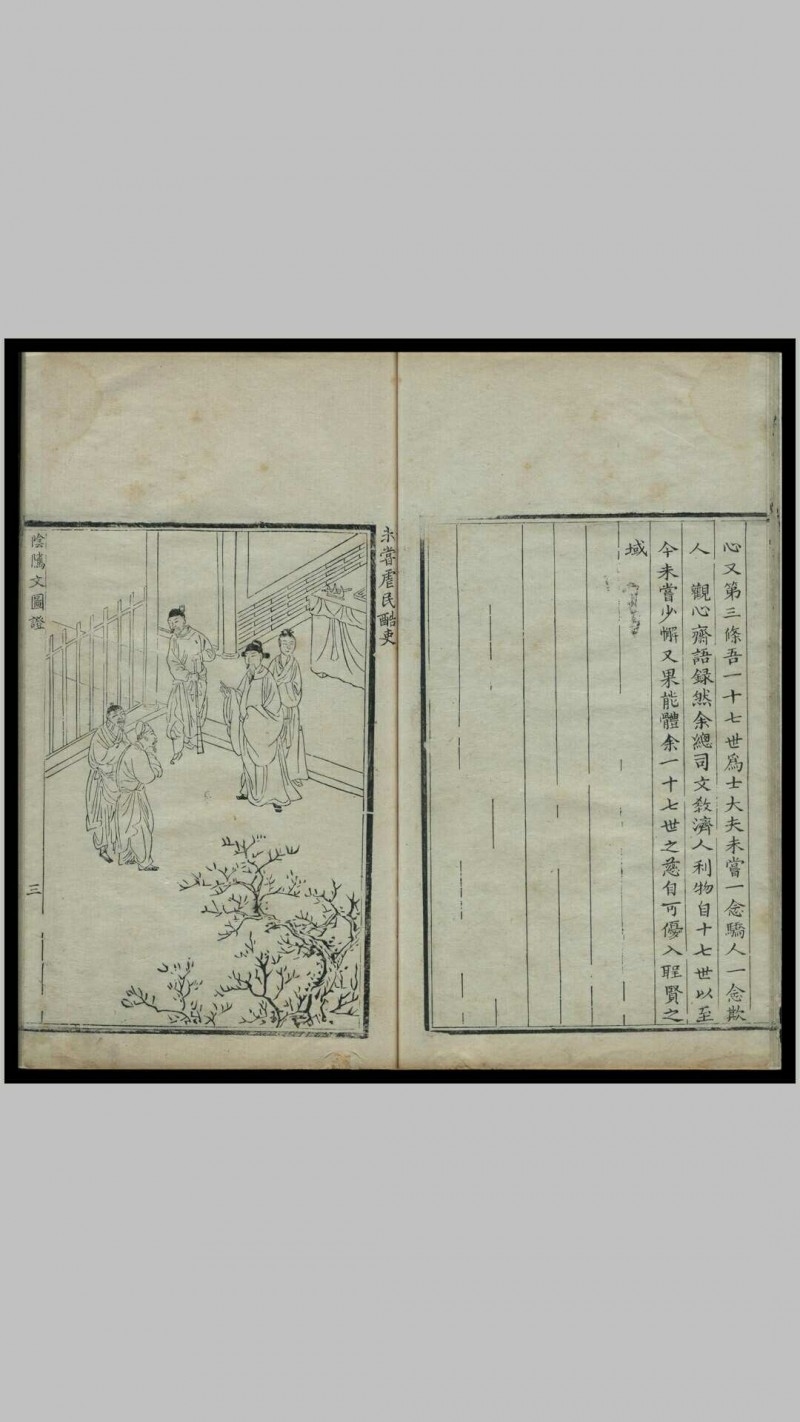 心又第三條吾一十七世爲士大夫未嘗一念驕人一念欺
人　觀心齋語録然余總司文敎濟人利物自十七世以至
今未嘗少懈又果能體余一十七世之慈自可優入聖賢之
域
未嘗虐民酷吏
陰騭文圖證
三